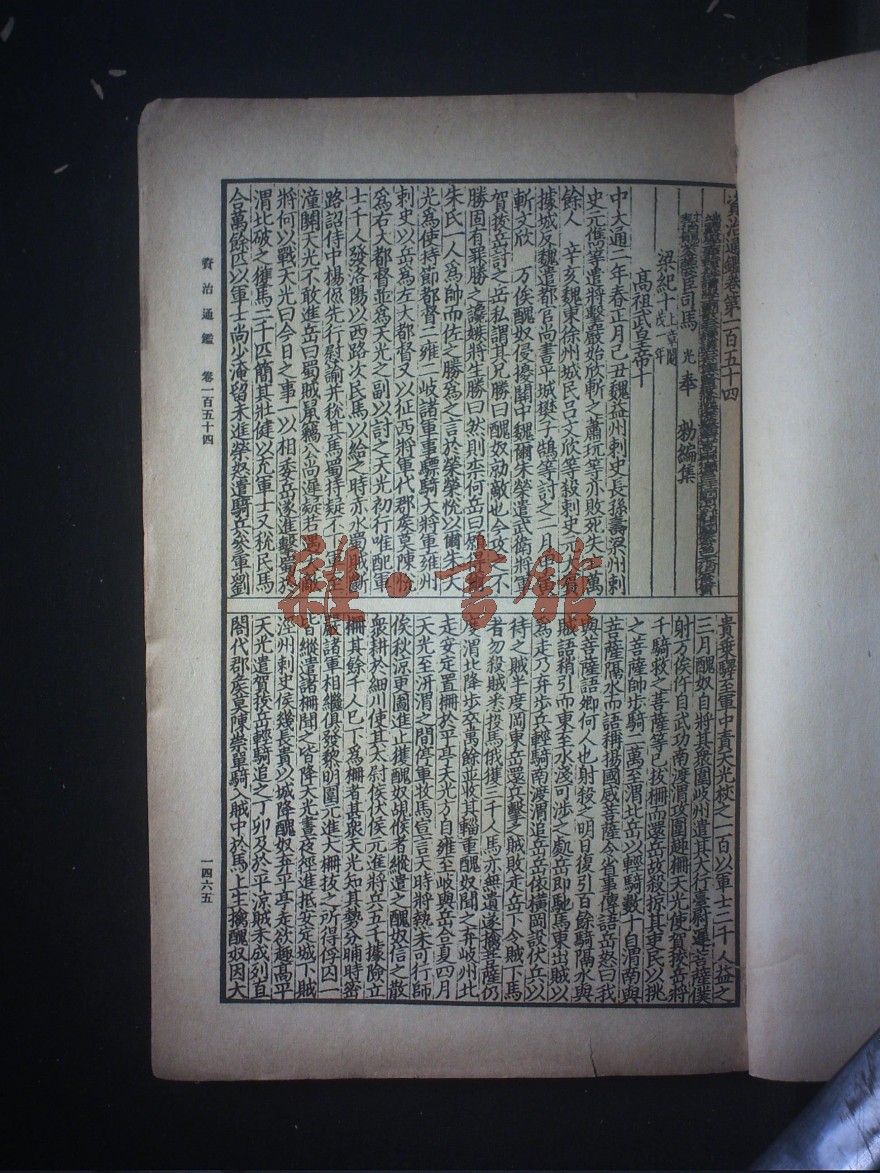 資治通鑑卷第一百五十四
司馬 光 奉 勑編集
梁紀十 上章閹茂一年
高祖武皇帝十
中大通二年春正月己丑魏益州刺史長孫壽梁州刺
史元儁等遣將擊嚴始欣斬之蕭玩等亦敗死失亡萬
餘人 辛亥魏東徐州城民呂文欣等殺刺史元大賓
據城反魏遣都官尚書平城樊子鵠等討之二月甲寅
斬文欣 万俟醜奴侵擾關中魏爾朱榮遣武衛將軍
賀拔岳討之岳私謂其兄勝曰醜奴勍敵也今攻之不
勝固有罪勝之讒嫉將生勝曰然則柰何岳曰願得爾
朱氏一人為帥而佐之勝為之言於榮榮悅以爾朱天
光為使持節都督二雍二岐諸軍事驃騎大將軍雍州
刺史以岳為左大都督又以征西將軍代郡侯莫陳悅
為右大都督並為天光之副以討之天光初行唯配軍
士千人發洛陽以西路次民馬以給之時赤水蜀賊斷
路詔侍中楊侃先行慰諭并稅其馬蜀持疑不下軍至
潼關天光不敢進岳曰蜀賊鼠竊公尚遲疑若遇大敵
將何以戰天光曰今日之事一以相委岳遂進擊蜀於
渭北破之獲馬二千匹簡其壯健以充軍士又稅民馬
合萬餘匹以軍士尚少淹留未進榮怒遣騎兵參軍劉
貴乘驛至軍中責天光杖之一百以軍士二千人益之
三月醜奴自將其眾圍岐州遣其大行臺尉遲菩薩僕
射万俟仵自武功南渡渭攻圍趣柵天光使賀拔岳將
千騎救之菩薩等已拔柵而還岳故殺掠其吏民以挑
之菩薩帥步騎二萬至渭北岳以輕騎數十自渭南與
菩薩隔水而語稱揚國威菩薩令省事傳語岳怒曰我
與菩薩語卿何人也射殺之明日復引百餘騎隔水與
賊語稍引而東至水淺可涉之處岳即馳馬東出賊以
為走乃弃步兵輕騎南渡渭追岳岳依橫岡設伏兵以
待之賊半度岡東岳還兵擊之賊敗走岳下令賊下馬
者勿殺賊悉投馬俄獲三千人馬亦無遺遂擒菩薩仍
度渭北降步卒萬餘並收其輜重醜奴聞之弃岐州北
走安定置柵於平亭天光方自雍至岐與岳合夏四月
天光至汧渭之間停軍牧馬宣言天時將熱未可行師
俟秋涼更圖進止獲醜奴覘候者縱遣之醜奴信之散
眾耕於細川使其太尉侯伏侯元進將兵五千據險立
柵其餘千人已下為柵者甚眾天光知其勢分晡時密
嚴諸軍相繼俱發黎明圍元進大柵拔之所得俘囚一
皆縱遣諸柵聞之皆降天光晝夜徑進抵安定城下賊
涇州刺史侯幾長貴以城降醜奴弃平亭走欲趣高平
天光遣賀拔岳輕騎追之丁卯及於平涼賊未成列直
閤代郡侯莫陳崇單騎入賊中於馬上生擒醜奴因大
資治通鑑 卷一百五十四
一四六五
雜·書館